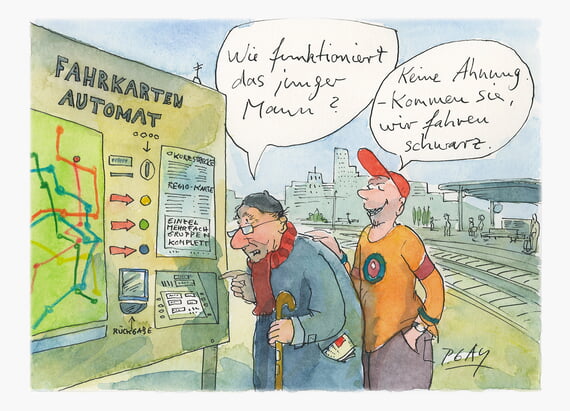 FAHRKARTEN
AUTOMAT
KURZSTRECKE
REGIO-KARTE
EINZEL
MEHRFACH
GRUPPEN
KOMPLETT
RÜCKGABE
Wie funktioniert
das junger
Mann?
Keine Ahnung.
-Kommen sie,
wir fahren
schwarz.
PGAY